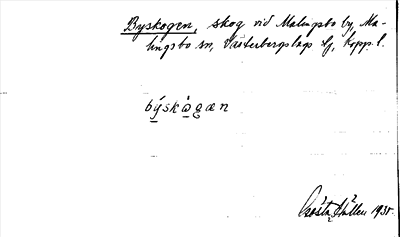 Byskogen, skog vid Malingsbo by, Ma-
lingsbo sn, Västerbergslags dg, Kopp. l.
býskɷ̀gæn
Gösta 1935.